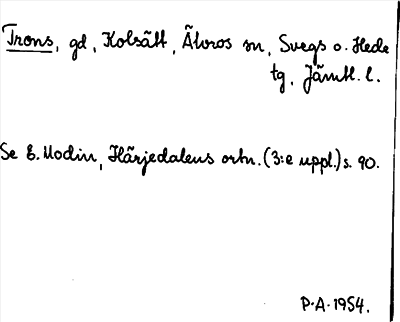 Trons, gd, Kolsätt, Älvros sn, Svegs o. Hede
tg, Jämtl. l.
Se E. Modin, Härjedalens ortn. (3:e uppl.) s. 90.
P.A. 1954.